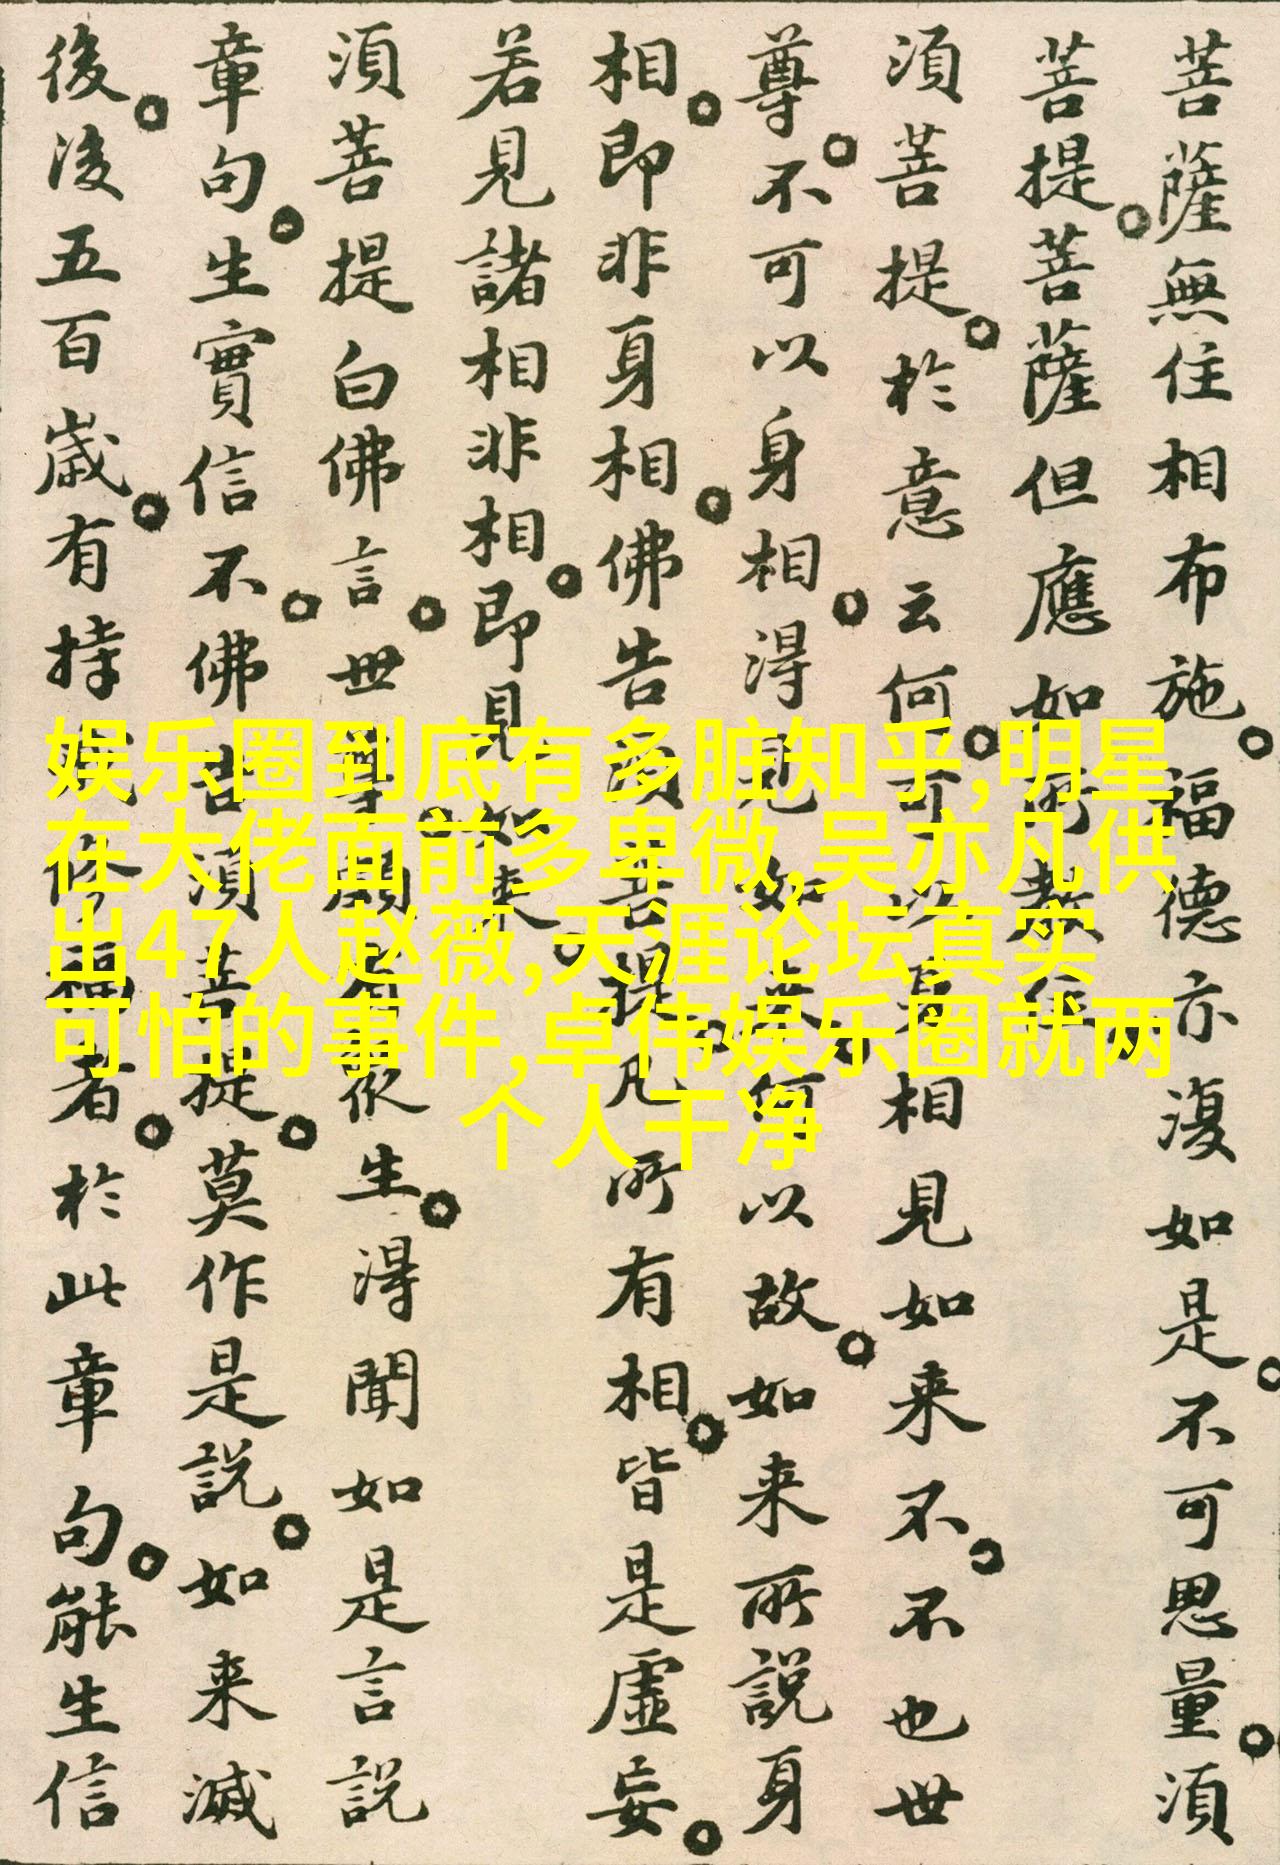 菩薩無住相布施福德亦復如是不可思量須
菩提菩薩但應如所教住
須菩提於意云何可以身相見如来不不也世
尊不可以身相得見如来何以故如来所說身
相即非身相佛告須菩提凡所有相皆是虛妄
若見諸相非相即見如来
須菩提白佛言世尊頗有眾生得聞如是言說
章句生實信不佛告須菩提莫作是說如来滅
後後五百歲有持戒修福者於此章句能生信
娱乐圈到底有多脏知乎,明星
在大佬面前多卑微,吴亦凡供
出47人赵薇,天涯论坛真实
可怕的事件,卓伟娱乐圈就两
个人干净